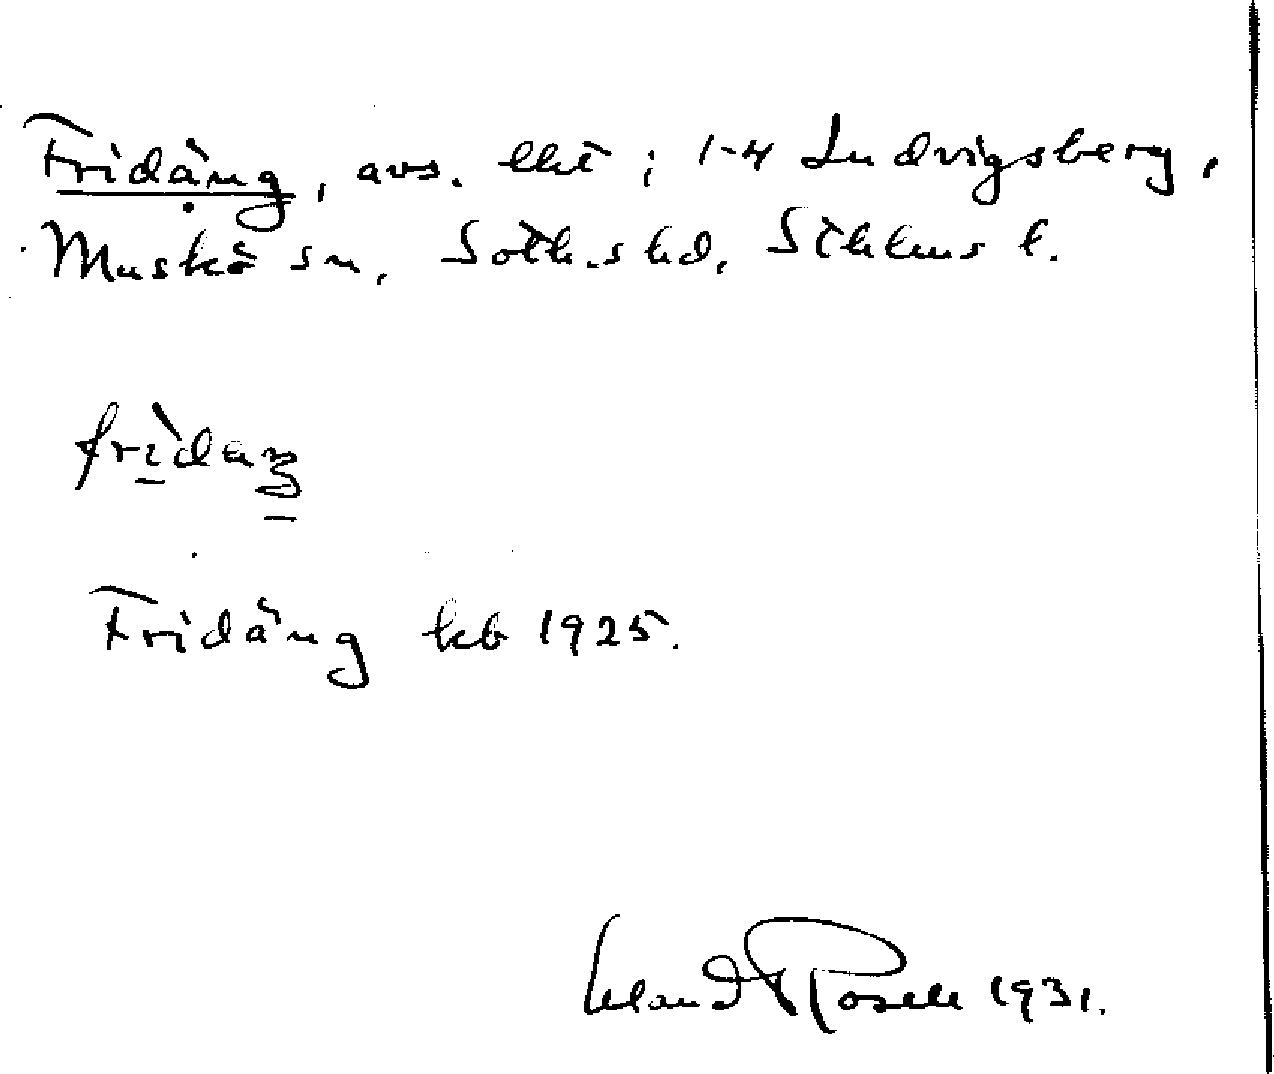 Fridäng, avs. lht i 1-4 Ludvigsberg,
Muskö sn, Soth.s hd, Sthlms l.
fridaŋ
Fridäng kb 1925.
Erland Rosell 1931.